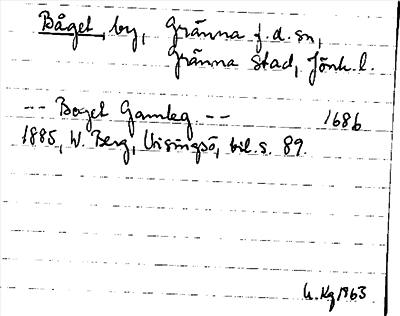 Båget, by, Gränna f.d. sn,
Gränna stad, Jönk. l.
-- Boget Gamleg -- 1686
1885, W. Berg, Visingsö, bil. s. 89.
U. Kg 1963